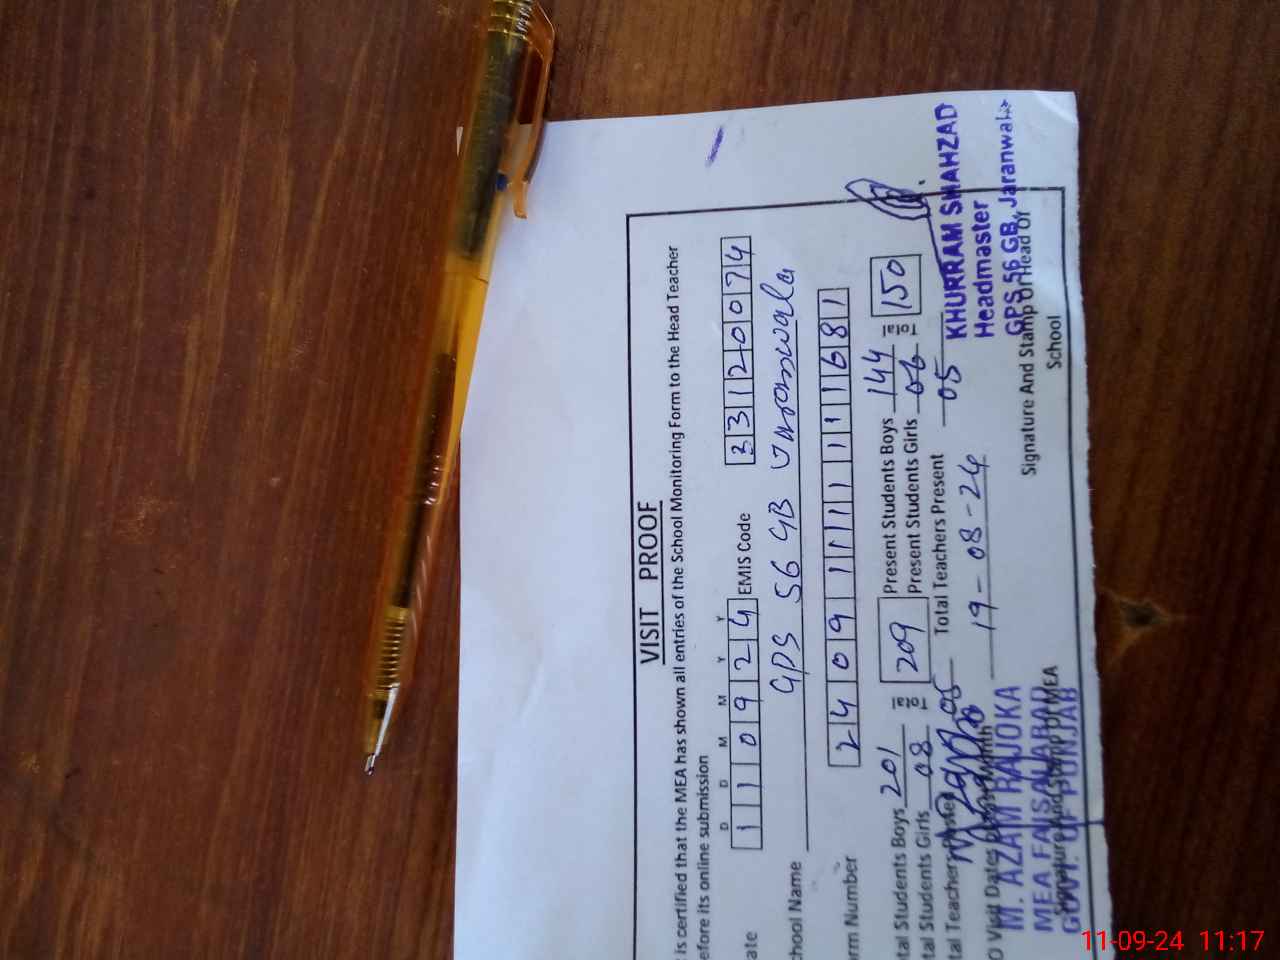 VISIT PROOF
is certified that the MEA has shown all entries of the School Monitoring Form to the Head Teacher
efore its online submission
D D M M Y Y
ate 1 1 0 9 2 4 EMIS Code 3 3 1 2 0 0 7 4
chool Name GPS 56 GB Jaranwala
orm Number 2 4 0 9 1 1 1 1 1 1 1 6 8 1
tal Students Boys 201 Total 209 Present Students Boys 144 Total 150
tal Students Girls 08 Present Students Girls 06
tal Teachers 05 Total Teachers Present 05
O Visit Dates 19-08-24
M. AZAM RAJOKA
MEA FAISALABAD
GOVT. OF PUNJAB
Signature And Stamp Of MEA
KHURRAM SHAHZAD
Headmaster
GPS 56 GB, Jaranwala
Signature And Stamp Of Head Of
School
11-09-24 11:17